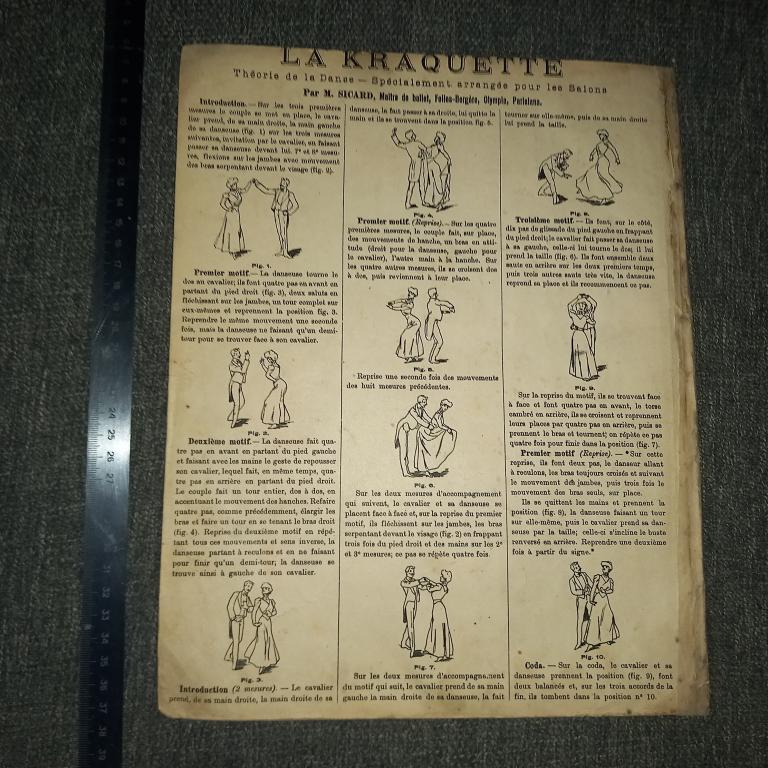 LA KRAQUETTE
Théorie de la Danse — Spécialement arrangée pour les Salons
Par M. SICARD, Maître de ballet, Folies-Bergère, Olympia, Parisiana.
Introduction. — Sur les trois premières
mesures le couple se met en place, le cava-
lier prend, de sa main droite, la main gauche
de sa danseuse (fig. 1) sur les trois mesures
suivantes, invitation par le cavalier, en faisant
passer sa danseuse devant lui. 7e et 8e mesu-
res, flexions sur les jambes avec mouvement
des bras serpentant devant le visage (fig. 2).
Fig. 1.
Premier motif. — La danseuse tourne le
dos au cavalier; ils font quatre pas en avant en
partant du pied droit (fig. 3), deux saluts en
fléchissant sur les jambes, un tour complet sur
eux-mêmes et reprennent la position fig. 3.
Reprendre le même mouvement une seconde
fois, mais la danseuse ne faisant qu'un demi-
tour pour se trouver face à son cavalier.
Fig. 2.
Deuxième motif. — La danseuse fait qua-
tre pas en avant en partant du pied gauche
et faisant avec les mains le geste de repousser
son cavalier, lequel fait, en même temps, qua-
tre pas en arrière en partant du pied droit.
Le couple fait un tour entier, dos à dos, en
accentuant le mouvement des hanches. Refaire
quatre pas, comme précédemment, élargir les
bras et faire un tour en se tenant le bras droit
(fig. 4). Reprise du deuxième motif en répé-
tant tous ces mouvements et sens inverse, la
danseuse partant à reculons et en ne faisant
pour finir qu'un demi-tour; la danseuse se
trouve ainsi à gauche de son cavalier.
Fig. 3.
Introduction (2 mesures). — Le cavalier
prend, de sa main droite, la main droite de sa
danseuse, la fait passer à sa droite, lui quitte la
main et ils se trouvent dans la position fig. 5.
Fig. 4.
Premier motif. (Reprise). — Sur les quatre
premières mesures, le couple fait, sur place,
des mouvements de hanche, un bras en atti-
tude (droit pour la danseuse, gauche pour
le cavalier), l'autre main à la hanche. Sur
les quatre autres mesures, ils se croisent dos
à dos, puis reviennent à leur place.
Fig. 5.
Reprise une seconde fois des mouvements
des huit mesures précédentes.
Fig. 6.
Sur les deux mesures d'accompagnement
qui suivent, le cavalier et sa danseuse se
placent face à face et, sur la reprise du premier
motif, ils fléchissent sur les jambes, les bras
serpentant devant le visage (fig. 2) en frappant
trois fois du pied droit et des mains sur les 2e
et 3e mesures; ce pas se répète quatre fois.
Fig. 7.
Sur les deux mesures d'accompagnement
du motif qui suit, le cavalier prend de sa main
gauche la main droite de sa danseuse, la fait
tourner sur elle-même, puis de sa main droite
lui prend la taille.
Fig. 8.
Troisième motif. — Ils font, sur le côté,
dix pas de glissade du pied gauche en frappant
du pied droit; le cavalier fait passer sa danseuse
à sa gauche, celle-ci lui tourne le dos; il lui
prend la taille (fig. 6). Ils font ensemble deux
sauts en arrière sur les deux premiers temps,
puis trois autres sauts très vite, la danseuse
reprend sa place et ils recommencent ce pas.
Fig. 9.
Sur la reprise du motif, ils se trouvent face
à face et font quatre pas en avant, le torse
cambré en arrière, ils se croisent et reprennent
leurs places par quatre pas en arrière, puis se
prennent le bras et tournent; on répète ce pas
quatre fois pour finir dans la position (fig. 7).
Premier motif (Reprise). — *Sur cette
reprise, ils font deux pas, le danseur allant
à reculons, les bras toujours croisés et suivant
le mouvement des jambes, puis trois fois le
mouvement des bras seuls, sur place.
Ils se quittent les mains et prennent la
position (fig. 8), la danseuse faisant un tour
sur elle-même, puis le cavalier prend sa dan-
seuse par la taille; celle-ci s'incline le buste
renversé en arrière. Reprendre une deuxième
fois à partir du signe.*
Fig. 10.
Coda. — Sur la coda, le cavalier et sa
danseuse prennent la position (fig. 9), font
deux balancés et, sur les trois accords de la
fin, ils tombent dans la position n° 10.
24
25
26
27
31
32
33
34
35
36
37
38
39